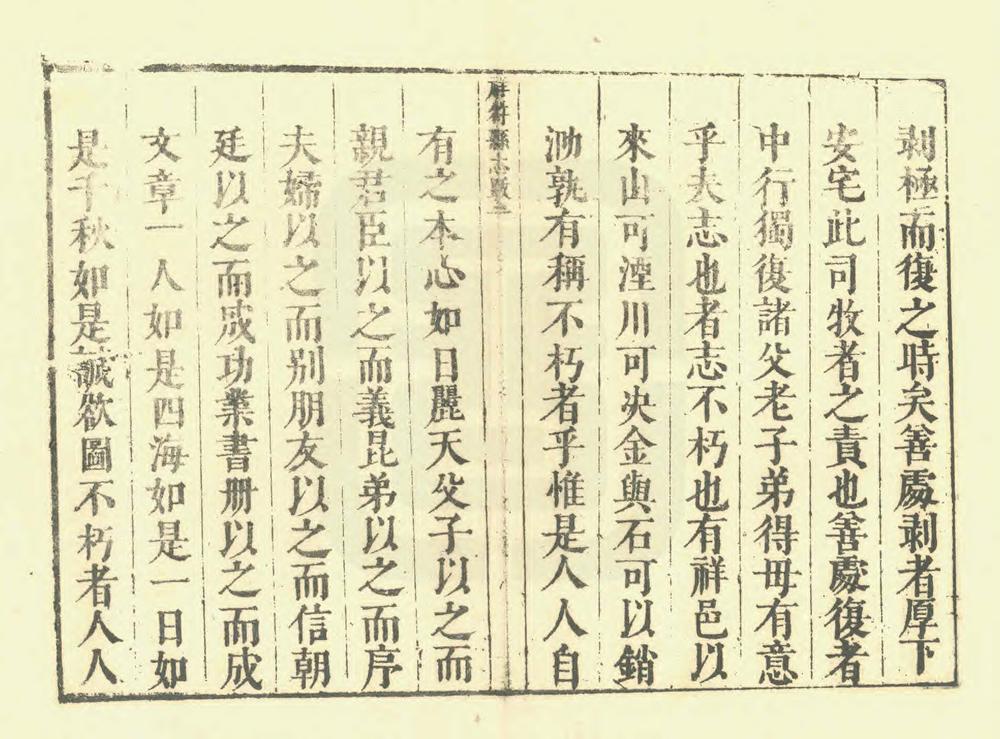 剥極而復之時矣善處剥者厚下
安宅此司牧者之責也善處復者
中行獨復諸父老子弟得毋有意
乎夫志也者志不朽也有祥邑以
來山可湮川可决金與石可以銷
泐孰有稱不朽者乎惟是人人自
祥符縣志
有之本心如日麗天父子以之而
親君臣以之而義昆弟以之而序
夫婦以之而别朋友以之而信朝
廷以之而成功業書册以之而成
文章一人如是四海如是一日如
是千秋如是誠欲圖不朽者人人